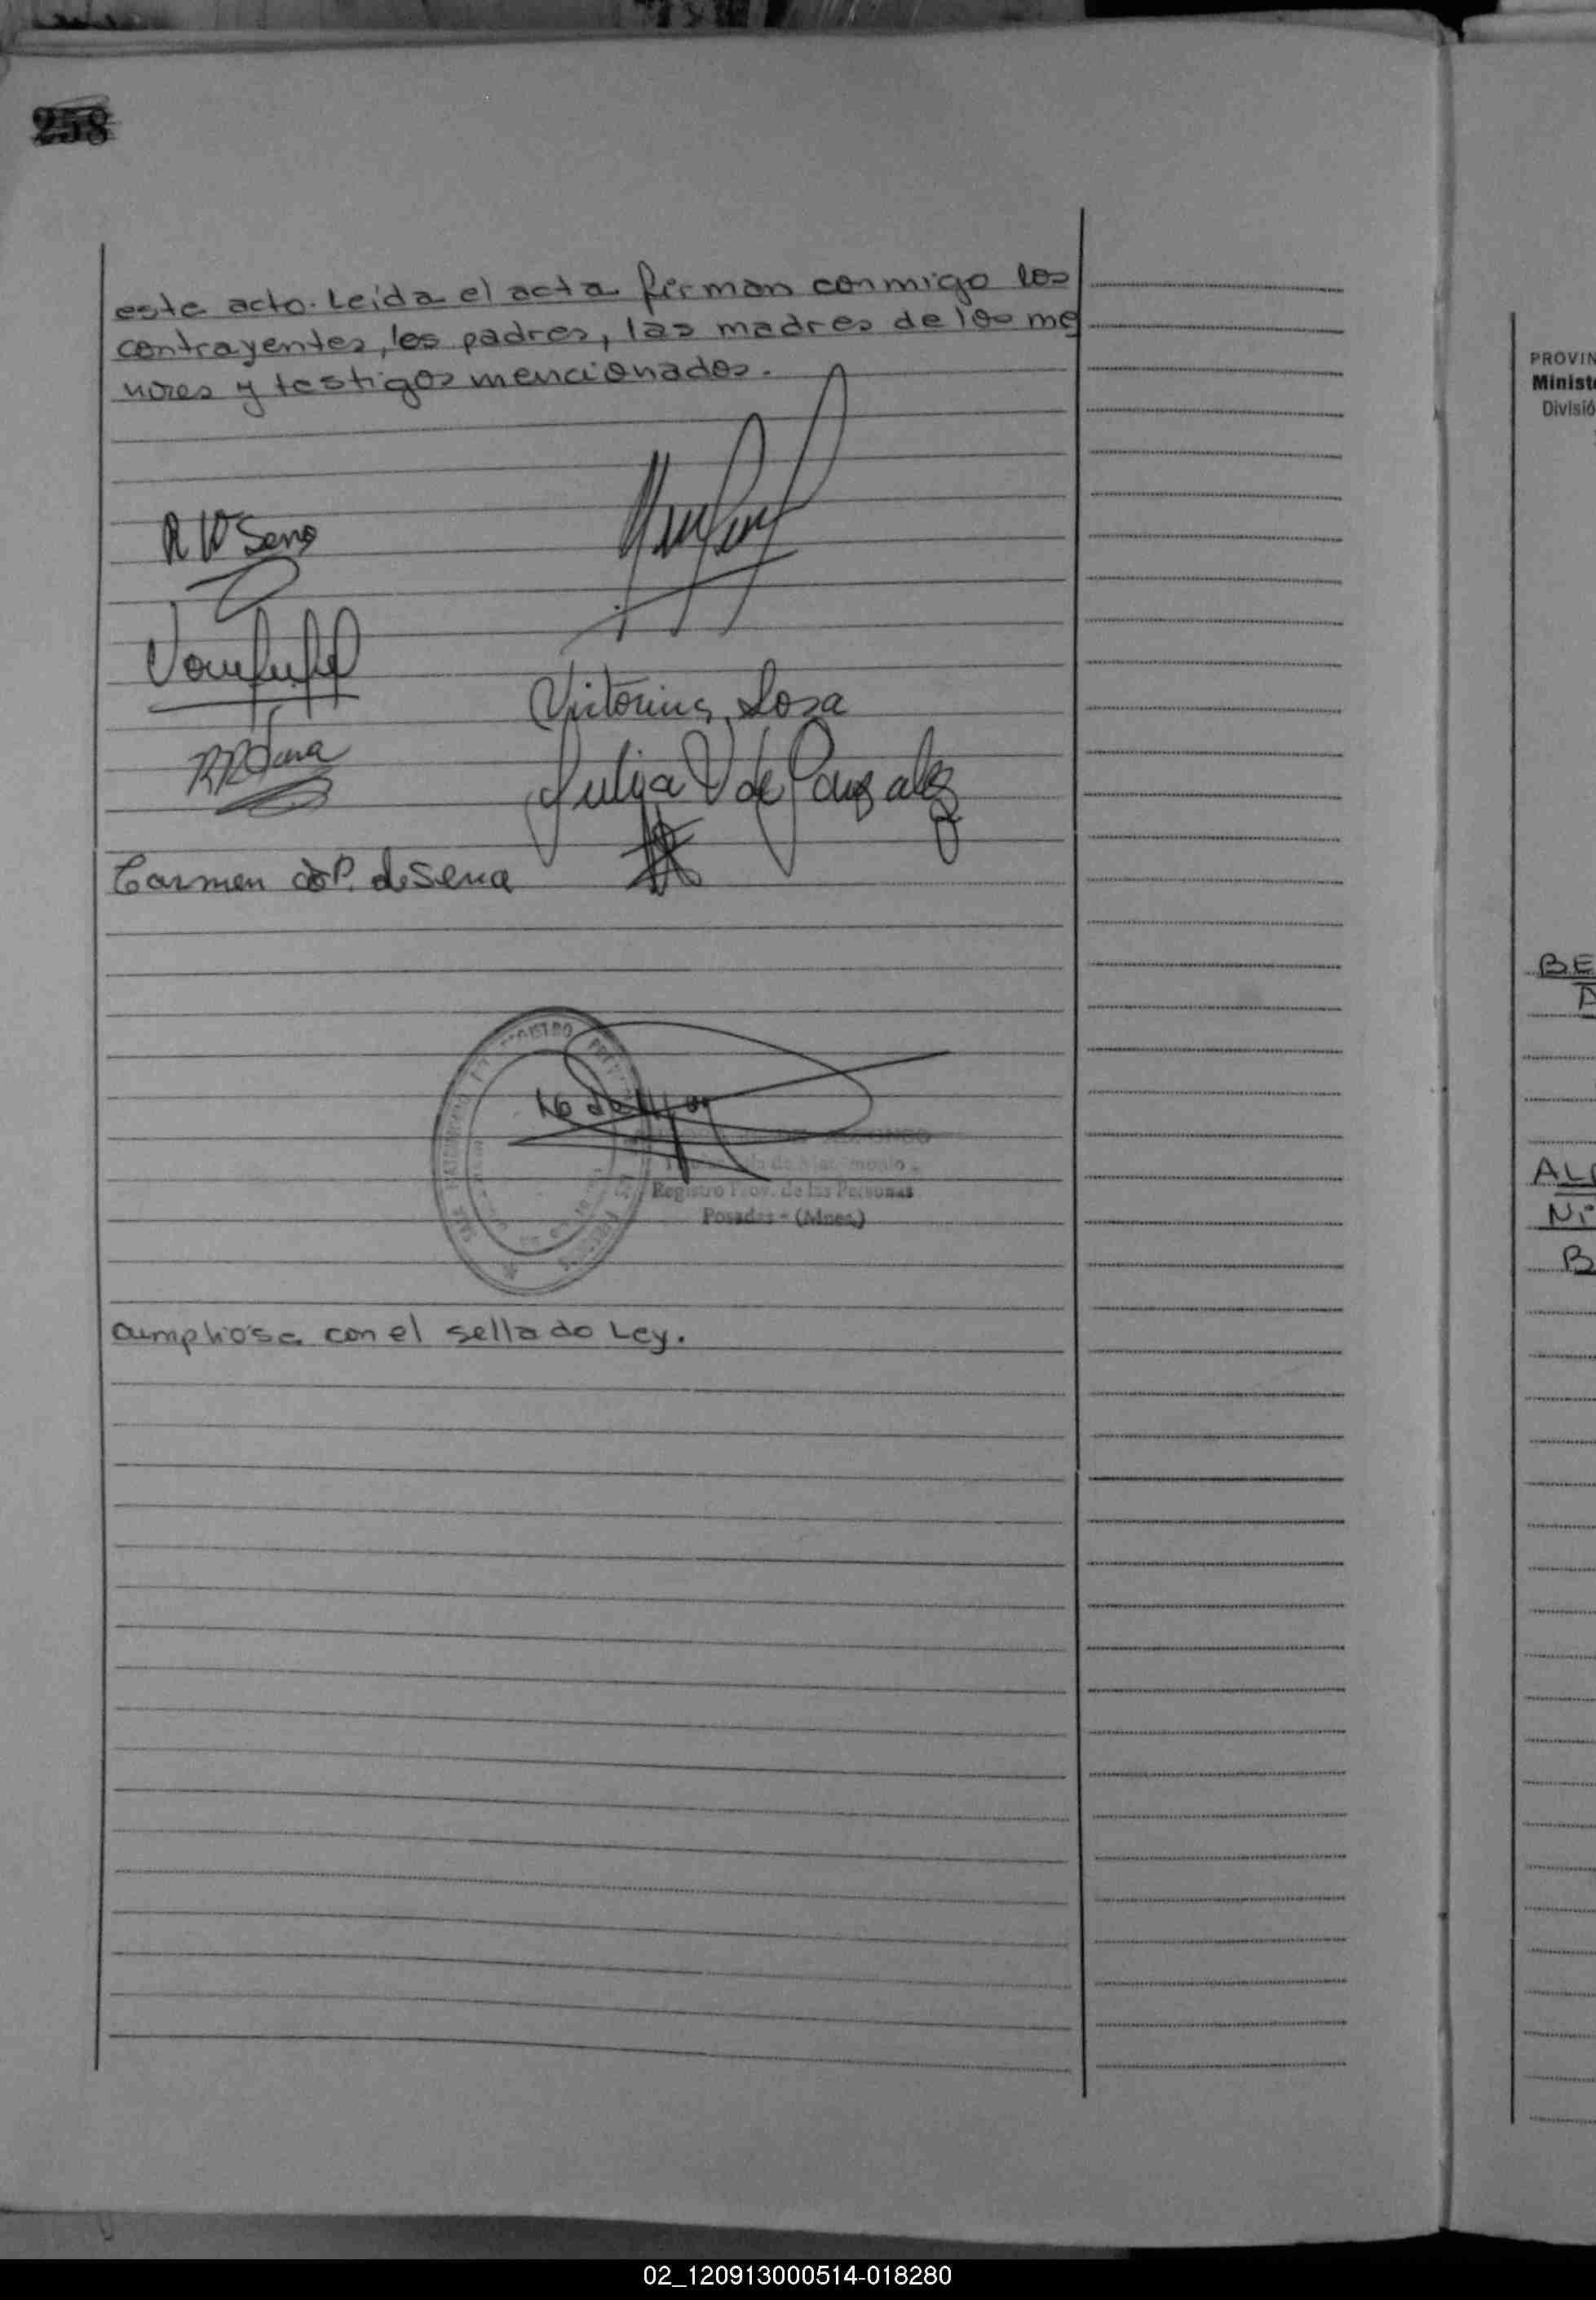 258
este acto. Leída el acta firman conmigo los
contrayentes, los padres, las madres de los me
nores y testigos mencionados.
R W Sena
Victorina Sosa
Julia V de Gonzalez
Carmen P. de Sena
REGISTRO
Registro Prov. de las Personas
Posadas - (Mnes.)
Cumplióse con el sellado Ley.
PROVIN
Ministe
Divisió
BE
AL
Ni
B
02_120913000514-018280